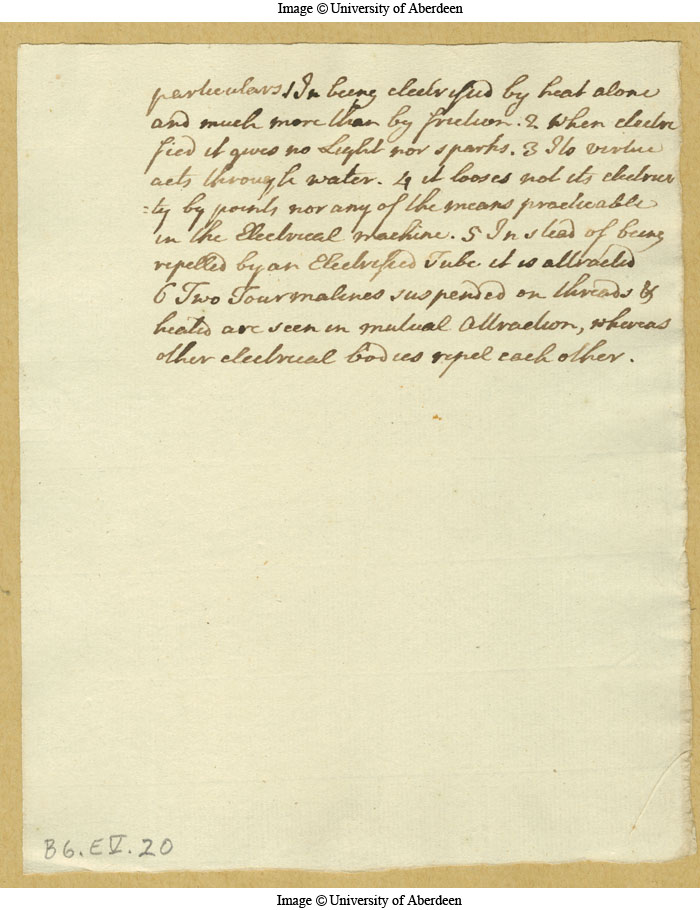 Image © University of Aberdeen
particulars 1 In being electrified by heat alone
and much more than by friction. 2 when electri
fied it gives no Light nor sparks. 3 Its virtue
acts through water. 4 it looses not its electrici
:ty by points nor any of the means practicable
in the Electrical machine. 5 In stead of being
repelled by an Electrified Tube it is attracted
6 Two Tourmalines suspended on threads &
heated are seen in mutual Attraction, whereas
other electrical bodies repel each other.
B6.EV.20
Image © University of Aberdeen